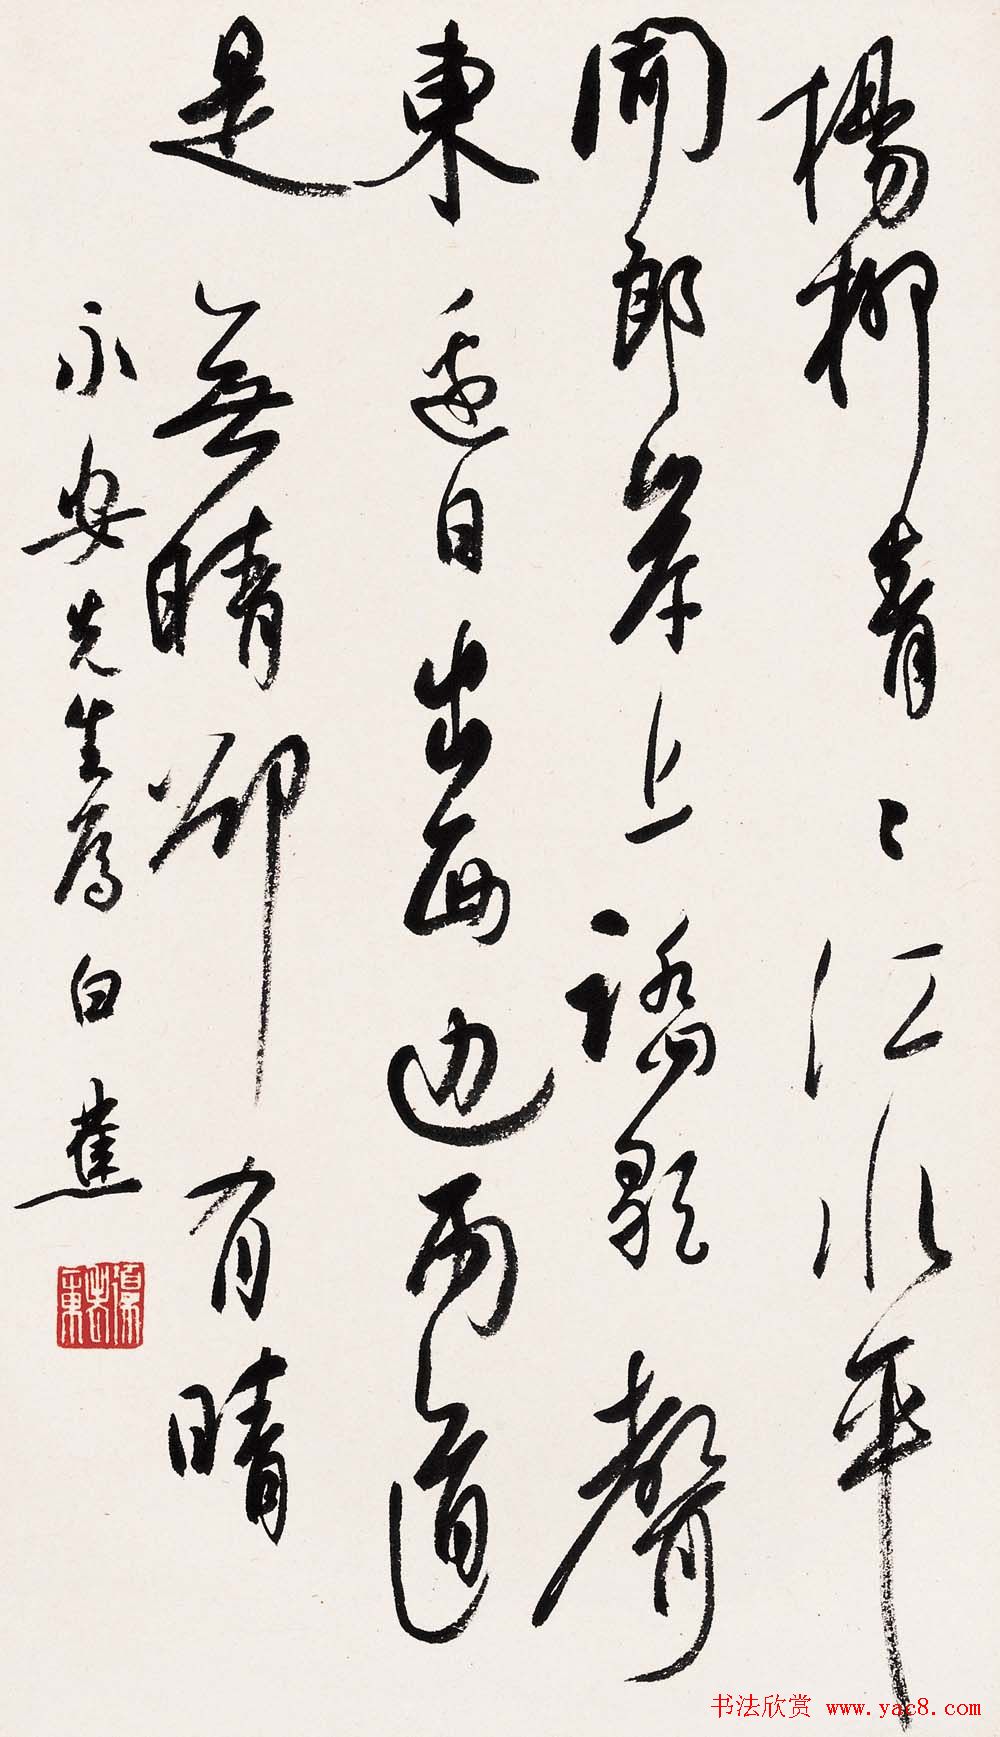 楊柳青〻江水平
聞郎岸上踏歌聲
東邊日出西边雨道
是無晴卻有晴
永安先生属 白蕉
书法欣赏 www.yac8.com